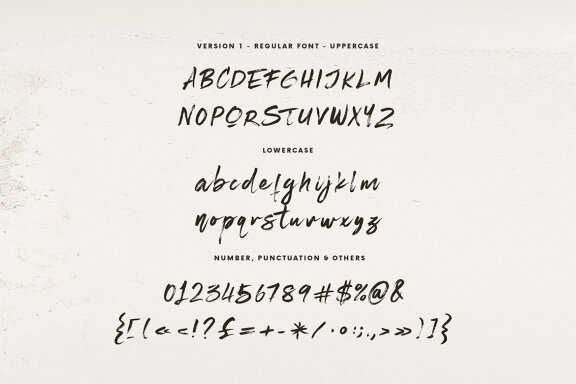 VERSION 1 - REGULAR FONT - UPPERCASE
ABCDEFGHIJKLM
NOPQRSTUVWXYZ
LOWERCASE
abcdefghijklm
nopqrstuvwxyz
NUMBER, PUNCTUATION & OTHERS
0123456789#$%@&
{[(«<!?£=+-*/·•:;.,>»)]}